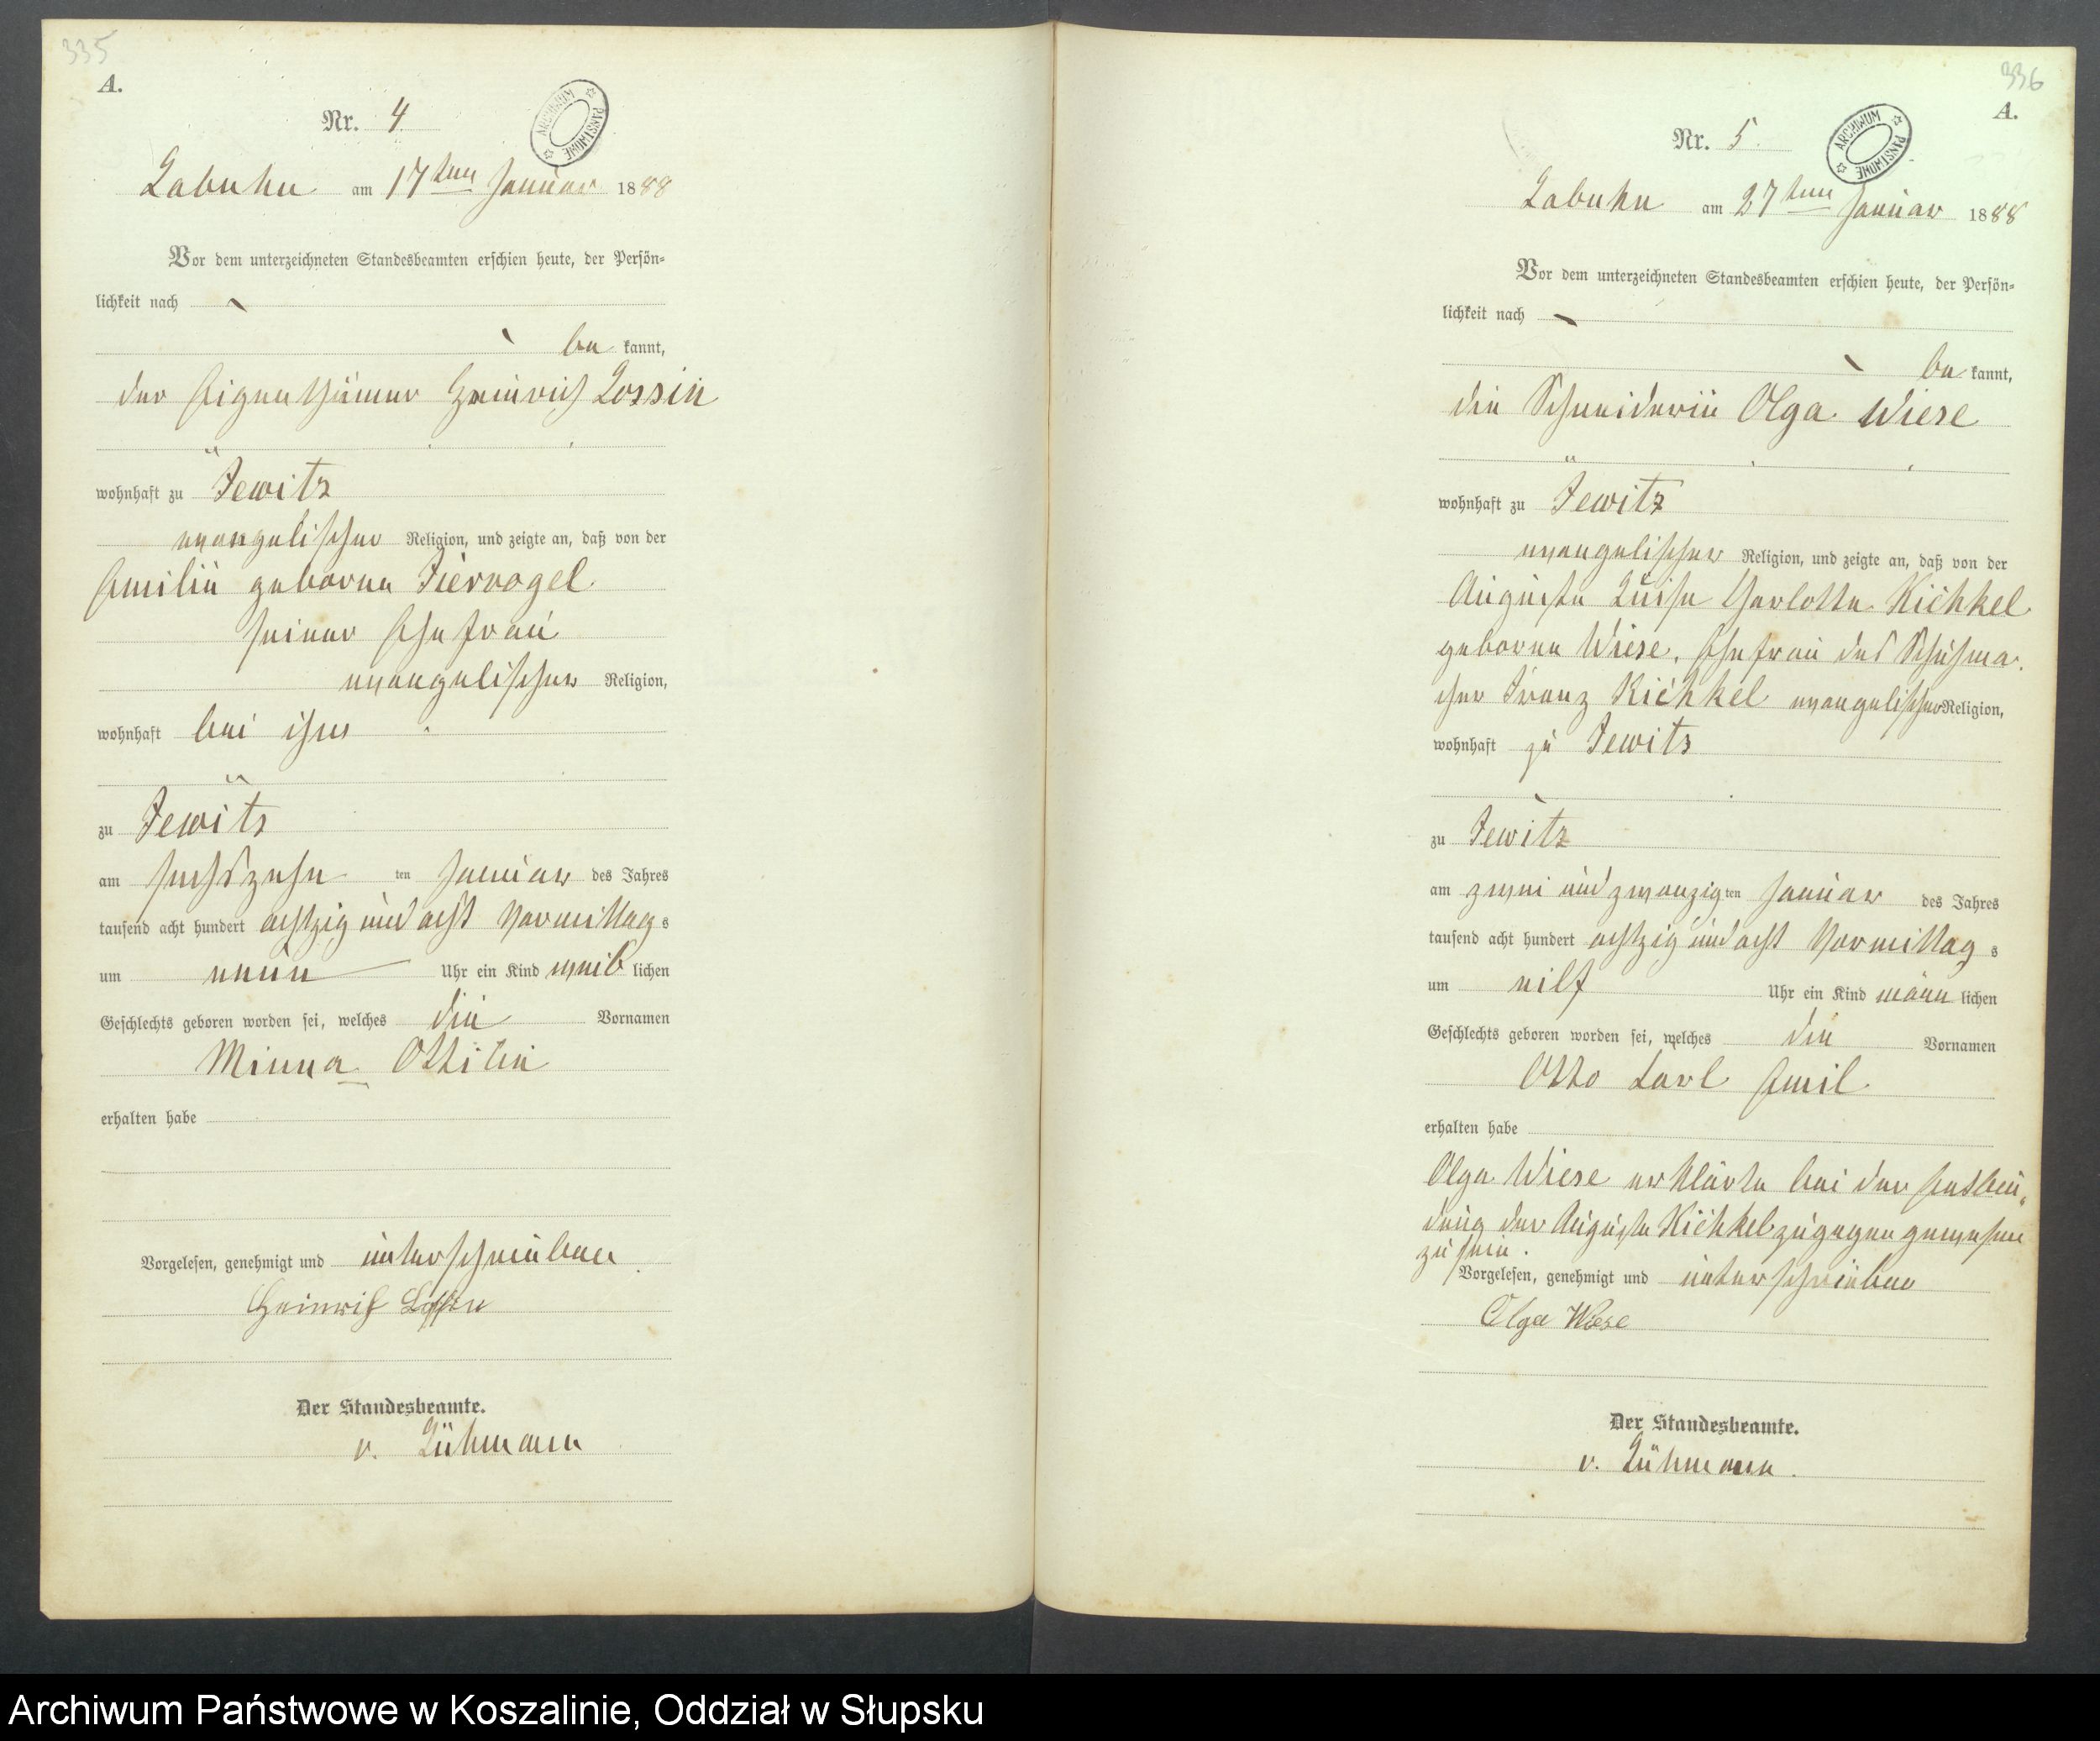 335
A.
Nr. 4.
ARCHIWUM PAŃSTWOWE
Labuhn am 17ten Januar 1888
Vor dem unterzeichneten Standesbeamten erschien heute, der Persön-
lichkeit nach
be kannt,
der Eigenthümer Heinrich Lossin
wohnhaft zu Jewitz
evangelischer Religion, und zeigte an, daß von der
Emilie geborne Tiervogel
seiner Ehefrau
evangelischer Religion,
wohnhaft bei ihm
zu Jewitz
am sechszehn ten Januar des Jahres
tausend acht hundert achtzig und acht Vormittag s
um neun Uhr ein Kind weib lichen
Geschlechts geboren worden sei, welches die Vornamen
Minna Ottilie
erhalten habe
Vorgelesen, genehmigt und unterschrieben
Heinrich Lossin
Der Standesbeamte.
v. Lühmann
336
A.
Nr. 5.
ARCHIWUM PAŃSTWOWE
Labuhn am 27ten Januar 1888
Vor dem unterzeichneten Standesbeamten erschien heute, der Persön-
lichkeit nach
be kannt,
die Schneiderin Olga Wiese
wohnhaft zu Jewitz
evangelischer Religion, und zeigte an, daß von der
Auguste Luise Charlotte
geborne Wiese, Ehefrau des Schuhma-
cher Franz evangelischer Religion,
wohnhaft zu Jewitz
zu Jewitz
am zwei und zwanzig ten Januar des Jahres
tausend acht hundert achtzig und acht Vormittag s
um eilf Uhr ein Kind männ lichen
Geschlechts geboren worden sei, welches die Vornamen
Otto Carl Emil
erhalten habe
Olga Wiese erklärte bei der Entbin-
dung der Auguste zugegen gewesen
zu sein.
Vorgelesen, genehmigt und unterschrieben
Olga Wiese
Der Standesbeamte.
v. Lühmann.
Archiwum Państwowe w Koszalinie, Oddział w Słupsku